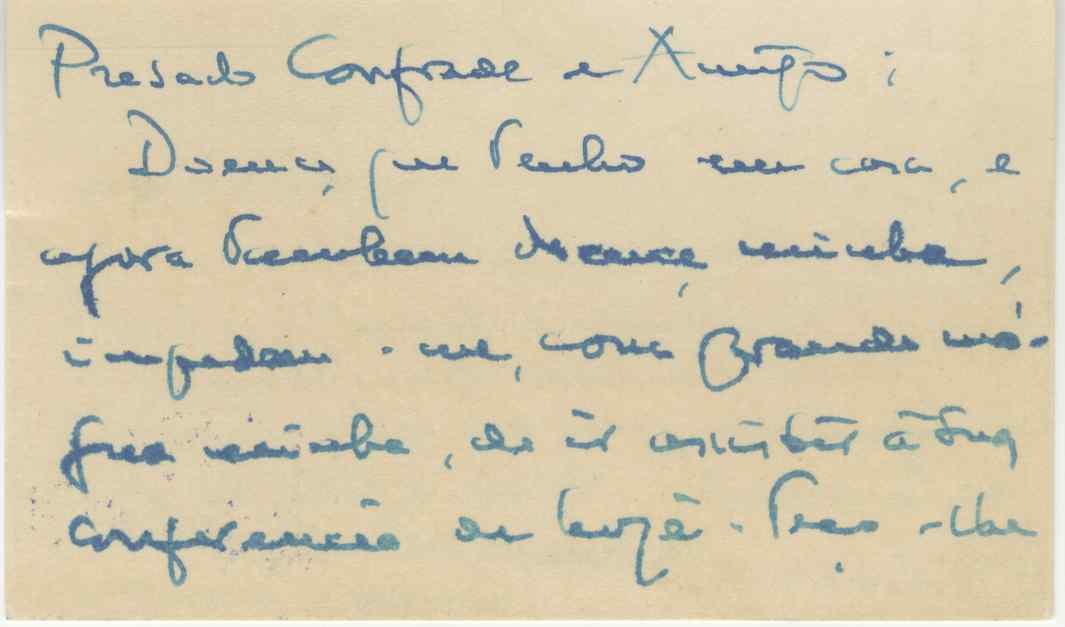 Presado Confrade e Amigo:
Doença que tenho em casa, e
agora tambem doença minha,
impedem-me, com grande má-
gua minha, de ir assistir à sua
conferencia de hoje. Peço-lhe